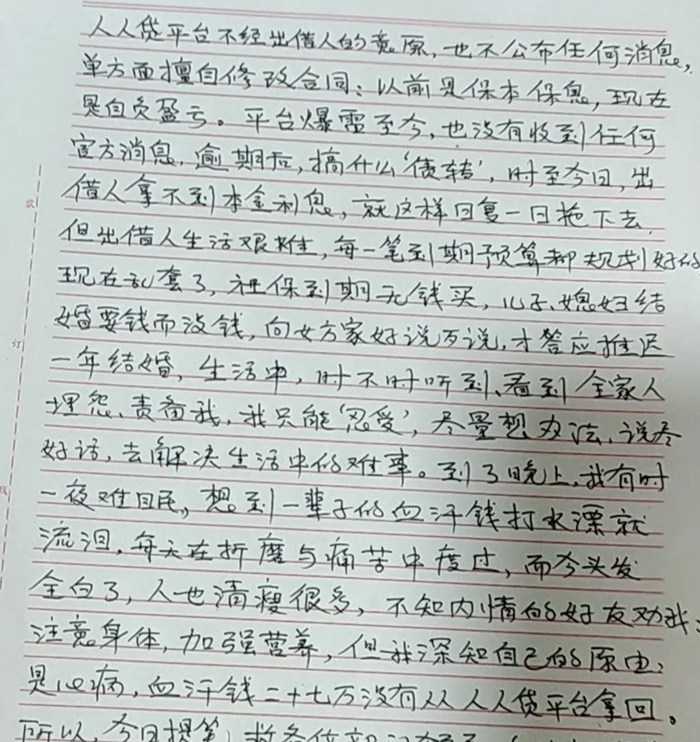 人人贷平台不经出借人的意愿，也不公布任何消息，
单方面擅自修改合同：以前是保本保息，现在
是自负盈亏。平台爆雷至今，也没有收到任何
官方消息，逾期后，搞什么‘债转’，时至今日，出
借人拿不到本金利息，就这样日复一日拖下去，
但出借人生活艰难，每一笔到期预算都规划好的
现在乱套了，社保到期无钱买，儿子、媳妇结
婚要钱而没钱，向女方家好说歹说，才答应推迟
一年结婚，生活中，时不时听到、看到全家人
埋怨、责备我，我只能‘忍受’，尽量想办法，说尽
好话，去解决生活中的难事。到了晚上，我有时
一夜难眠，想到一辈子的血汗钱打水漂就
流泪，每天在折磨与痛苦中度过，而今头发
全白了，人也清瘦很多，不知内情的好友劝我：
注意身体，加强营养，但我深知自己的原由，
是心病，血汗钱二十七万没有从人人贷平台拿回。
所以，今日提笔，